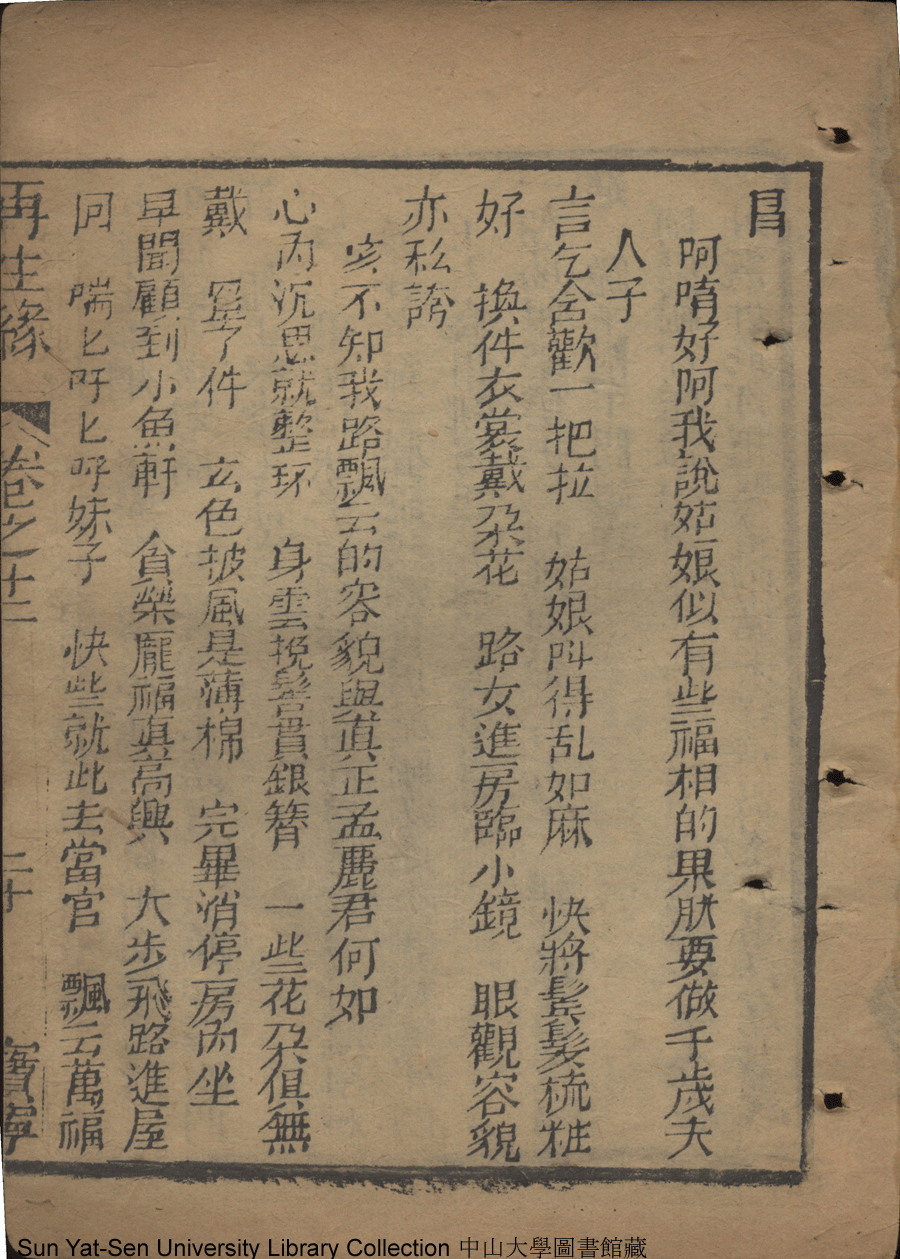 昌
阿唷好阿我說姑娘似有些福相的果肰要做千歲夫
人子
言乞舍歡一把拉　姑娘叫得乱如麻　快將鬓髮梳粧
好　換件衣裳戴朶花　路女進房臨小鏡　眼觀容貌
亦私誇
亥不知我路飄云的容貌與眞正孟麗君何如
心內沉思就整环　身雲挽髻貫銀簪　一些花朶俱無
戴　罢了件　玄色披風是薄棉　完畢消停房內坐
早聞顧到小魚軒　貪榮龐福眞高興　大步飛路進屋
囘　喘匕吁匕呼妹子　快些就此去當官　飄云萬福
再生緣　卷之十二　二十　寳寧
Sun Yat-Sen University Library Collection 中山大學圖書館藏